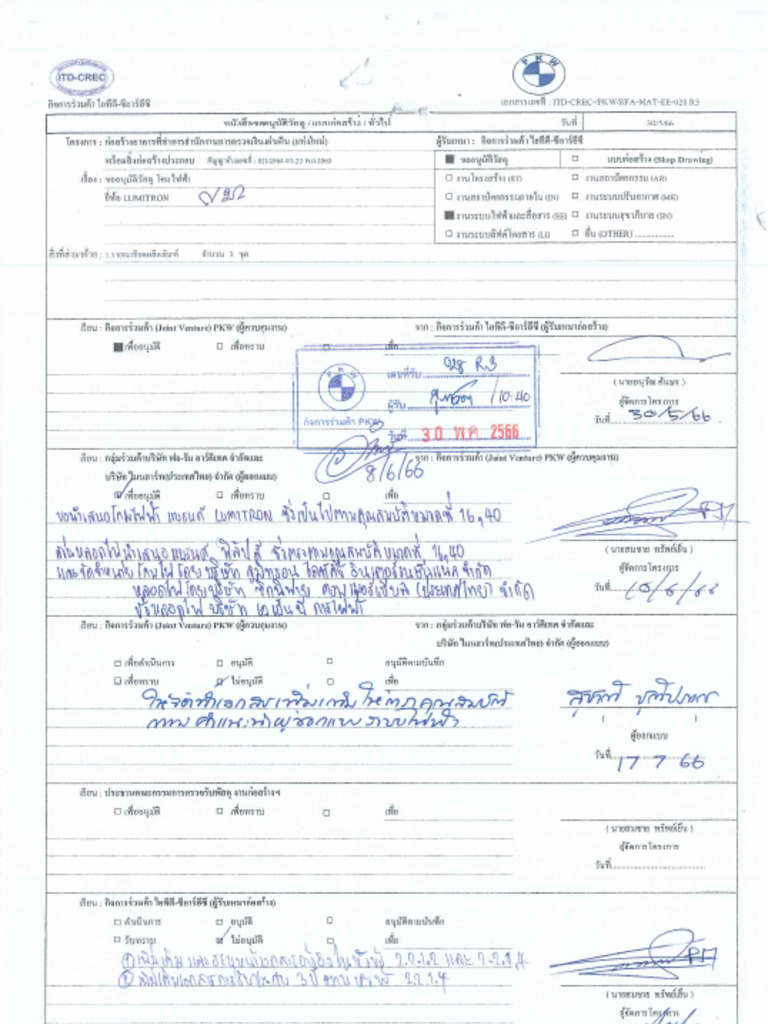 ITD-CREC
PKW
กิจการร่วมค้า ไอทีดี-ซีอาร์อีซี
เอกสารเลขที่ : ITD-CREC-PKW/RFA-MAT-EE-028 R3
หนังสือขออนุมัติวัสดุ / แบบก่อสร้าง / ทั่วไป วันที่ 30/5/66
โครงการ : ก่อสร้างอาคารที่ทำการสำนักงานการตรวจเงินแผ่นดิน (แห่งใหม่) ผู้รับเหมา : กิจการร่วมค้า ไอทีดี-ซีอาร์อีซี
พร้อมสิ่งก่อสร้างประกอบ สัญญาจ้างเลขที่ ขออนุมัติวัสดุ แบบก่อสร้าง (Shop Drawing)
เรื่อง : ขออนุมัติวัสดุ โคมไฟฟ้า งานโครงสร้าง (ST) งานสถาปัตยกรรม (AR)
ยี่ห้อ LUMITRON งานสถาปัตยกรรมภายใน (IN) งานระบบปรับอากาศ (ME)
งานระบบไฟฟ้าและสื่อสาร (EE) งานระบบสุขาภิบาล (SN)
งานระบบลิฟต์โดยสาร (LI) อื่น (OTHER)
สิ่งที่ส่งมาด้วย : 1.รายละเอียดผลิตภัณฑ์ จำนวน 3 ชุด
เรียน : กิจการร่วมค้า (Joint Venture) PKW (ผู้ควบคุมงาน) จาก : กิจการร่วมค้า ไอทีดี-ซีอาร์อีซี (ผู้รับเหมาก่อสร้าง)
เพื่ออนุมัติ เพื่อทราบ เพื่อ
PKW
เลขที่รับ 028 R.3
ผู้รับ 10:40
กิจการร่วมค้า PKW
วันที่ 30 พ.ค. 2566
ผู้จัดการโครงการ
วันที่ 30/5/66
8/6/66
เรียน : กลุ่มร่วมค้าบริษัท ฟอ-รัม อาร์คิเทค จำกัดและ จาก : กิจการร่วมค้า (Joint Venture) PKW (ผู้ควบคุมงาน)
บริษัท ไมนฮาร์ท(ประเทศไทย) จำกัด (ผู้ออกแบบ)
เพื่ออนุมัติ เพื่อทราบ เพื่อ
ขอนำเสนอโคมไฟฟ้า แบรนด์ LUMITRON ซึ่งเป็นไปตามคุณสมบัติหมวดที่ 16,40
ส่วนหลอดไฟนำเสนอแบรนด์ ฟิลิปส์ ซึ่งตรงตามคุณสมบัติหมวดที่ 16,40
และจัดจำหน่าย โคมไฟ โดย บริษัท ลูมิทรอน ไลท์ติ้ง อินเตอร์เนชั่นแนล จำกัด
หลอดไฟ โดยบริษัท ซิกนิฟาย คอมเมอร์เชียล (ประเทศไทย) จำกัด
( นายสมชาย ทรัพย์เย็น )
ผู้จัดการโครงการ
วันที่ 10/6/66
เรียน : กิจการร่วมค้า (Joint Venture) PKW (ผู้ควบคุมงาน) จาก : กลุ่มร่วมค้าบริษัท ฟอ-รัม อาร์คิเทค จำกัดและ
บริษัท ไมนฮาร์ท(ประเทศไทย) จำกัด (ผู้ออกแบบ)
เพื่อดำเนินการ อนุมัติ อนุมัติตามบันทึก
เพื่อทราบ ไม่อนุมัติ เพื่อ
ให้จัดทำเอกสารเพิ่มเติม ให้ตรงคุณสมบัติ
ตามคำแนะนำผู้ออกแบบระบบไฟฟ้า
ผู้ออกแบบ
วันที่ 17 7 66
เรียน : ประธานคณะกรรมการตรวจรับพัสดุ งานก่อสร้างฯ
เพื่ออนุมัติ เพื่อทราบ เพื่อ
( นายสมชาย ทรัพย์เย็น )
ผู้จัดการโครงการ
วันที่
เรียน : กิจการร่วมค้า ไอทีดี-ซีอาร์อีซี (ผู้รับเหมาก่อสร้าง)
ดำเนินการ อนุมัติ อนุมัติตามบันทึก
รับทราบ ไม่อนุมัติ เพื่อ
PM
( นายสมชาย ทรัพย์เย็น )
ผู้จัดการโครงการ